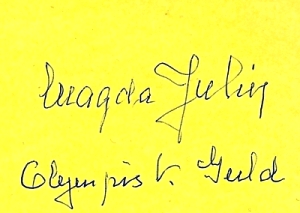 Magda Julin
Olympisk. Guld